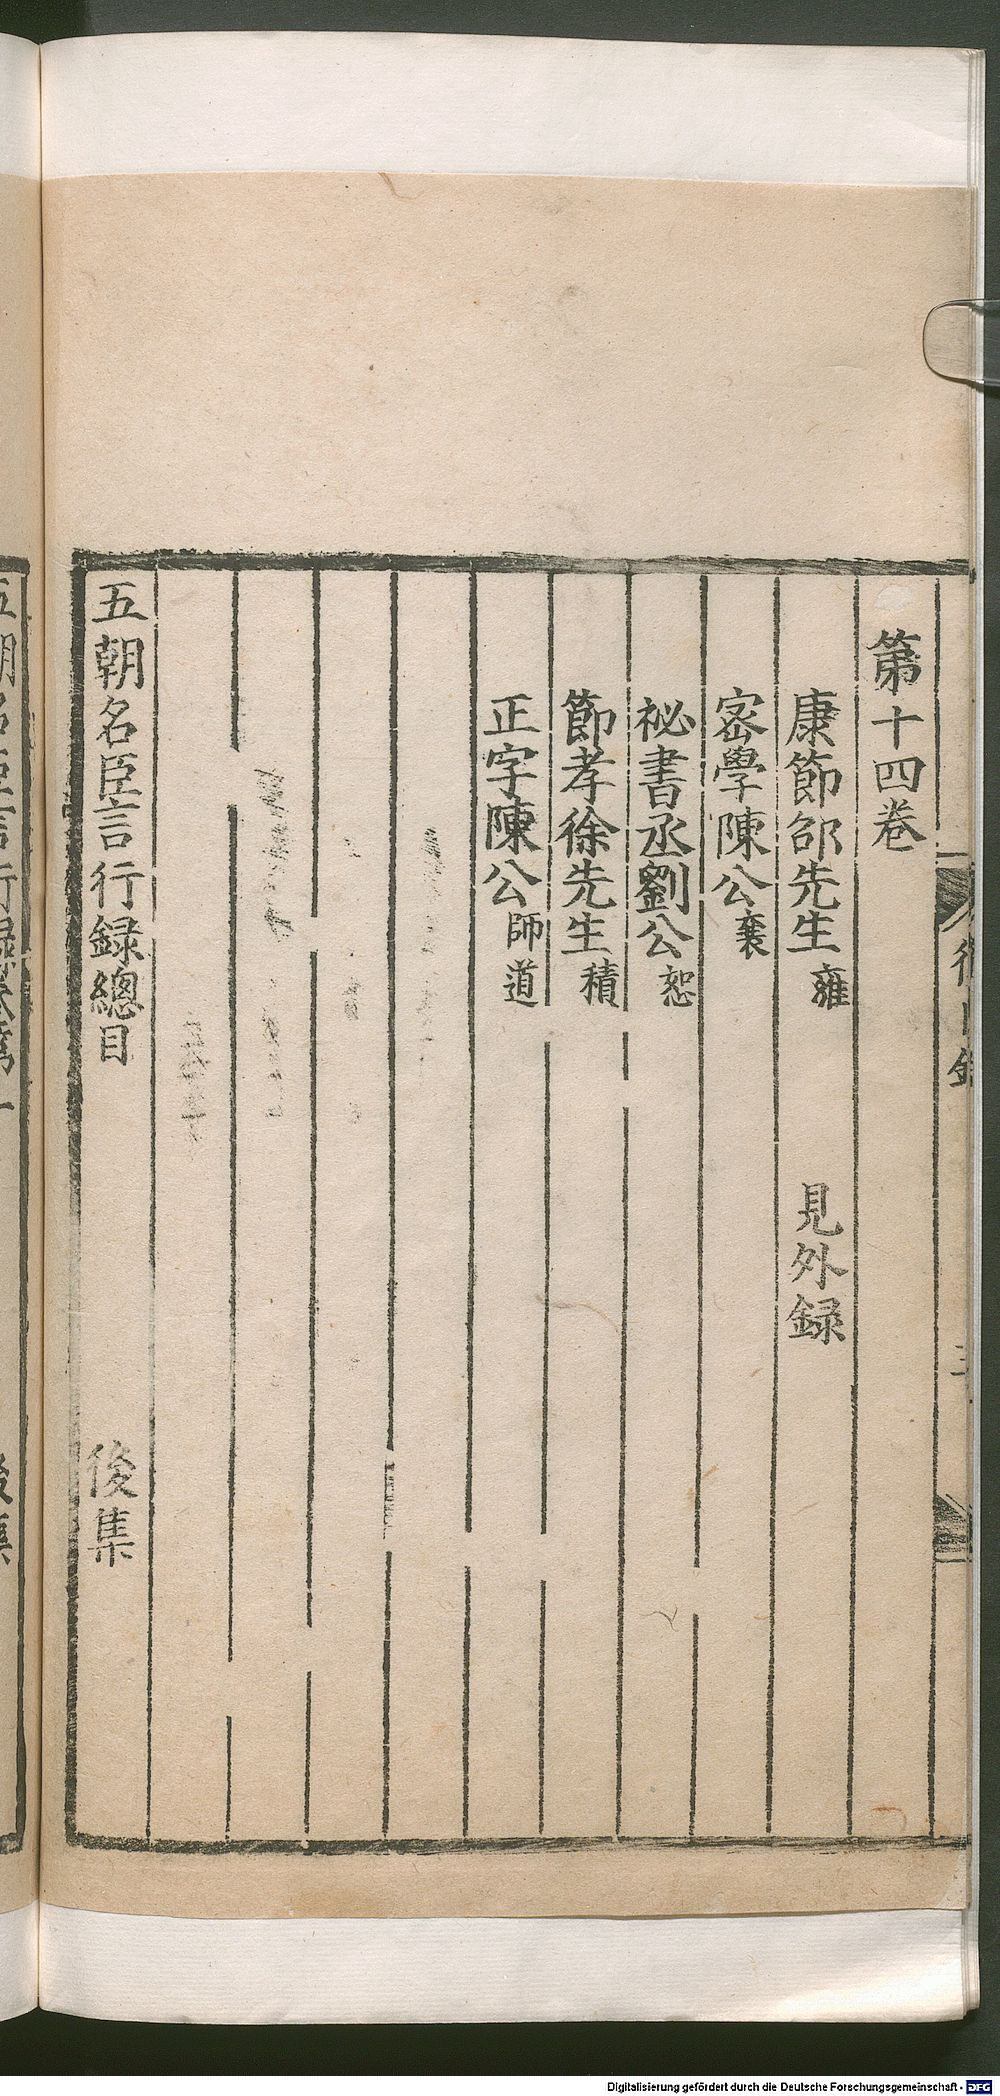 第十四卷
康節邵先生雍 見外録
宻學陳公襄
祕書丞劉公恕
節孝徐先生積
正字陳公師道
五朝名臣言行録總目 後集
Digitalisierung gefördert durch die Deutsche Forschungsgemeinschaft - DFG